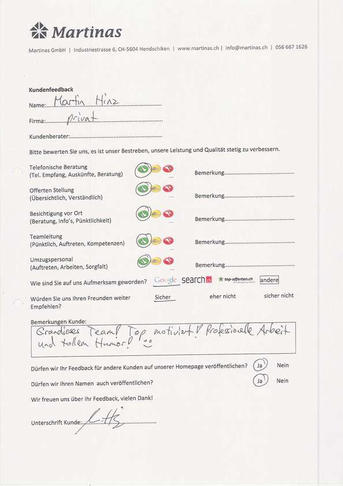 Martinas
Martinas GmbH | Industriestrasse 6, CH-5604 Hendschiken | www.martinas.ch | info@martinas.ch | 056 667 1626
Kundenfeedback
Name: Martin Hinz
Firma: privat
Kundenberater:
Bitte bewerten Sie uns, es ist unser Bestreben, unsere Leistung und Qualität stetig zu verbessern.
Telefonische Beratung
(Tel. Empfang, Auskünfte, Beratung) Bemerkung
Offerten Stellung
(Übersichtlich, Verständlich) Bemerkung
Besichtigung vor Ort
(Beratung, Info's, Pünktlichkeit) Bemerkung
Teamleitung
(Pünktlich, Auftreten, Kompetenzen) Bemerkung
Umzugspersonal
(Auftreten, Arbeiten, Sorgfalt) Bemerkung
Wie sind Sie auf uns Aufmerksam geworden? Google search.ch top-offerten.ch andere
Würden Sie uns Ihren Freunden weiter Sicher eher nicht sicher nicht
Empfehlen?
Bemerkungen Kunde:
Grandioses Team! Top motiviert! Professionelle Arbeit
und tollen Humor!
Dürfen wir Ihr Feedback für andere Kunden auf unserer Homepage veröffentlichen? Ja Nein
Dürfen wir Ihren Namen auch veröffentlichen? Ja Nein
Wir freuen uns über Ihr Feedback, vielen Dank!
Unterschrift Kunde: